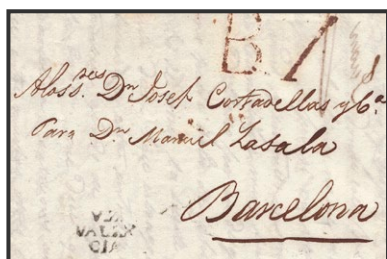 B. 1
A los S.res Dn Josef Cortadellas y C.a
Para Dn Manuel Lasala
Barcelona
VALEN
CIA